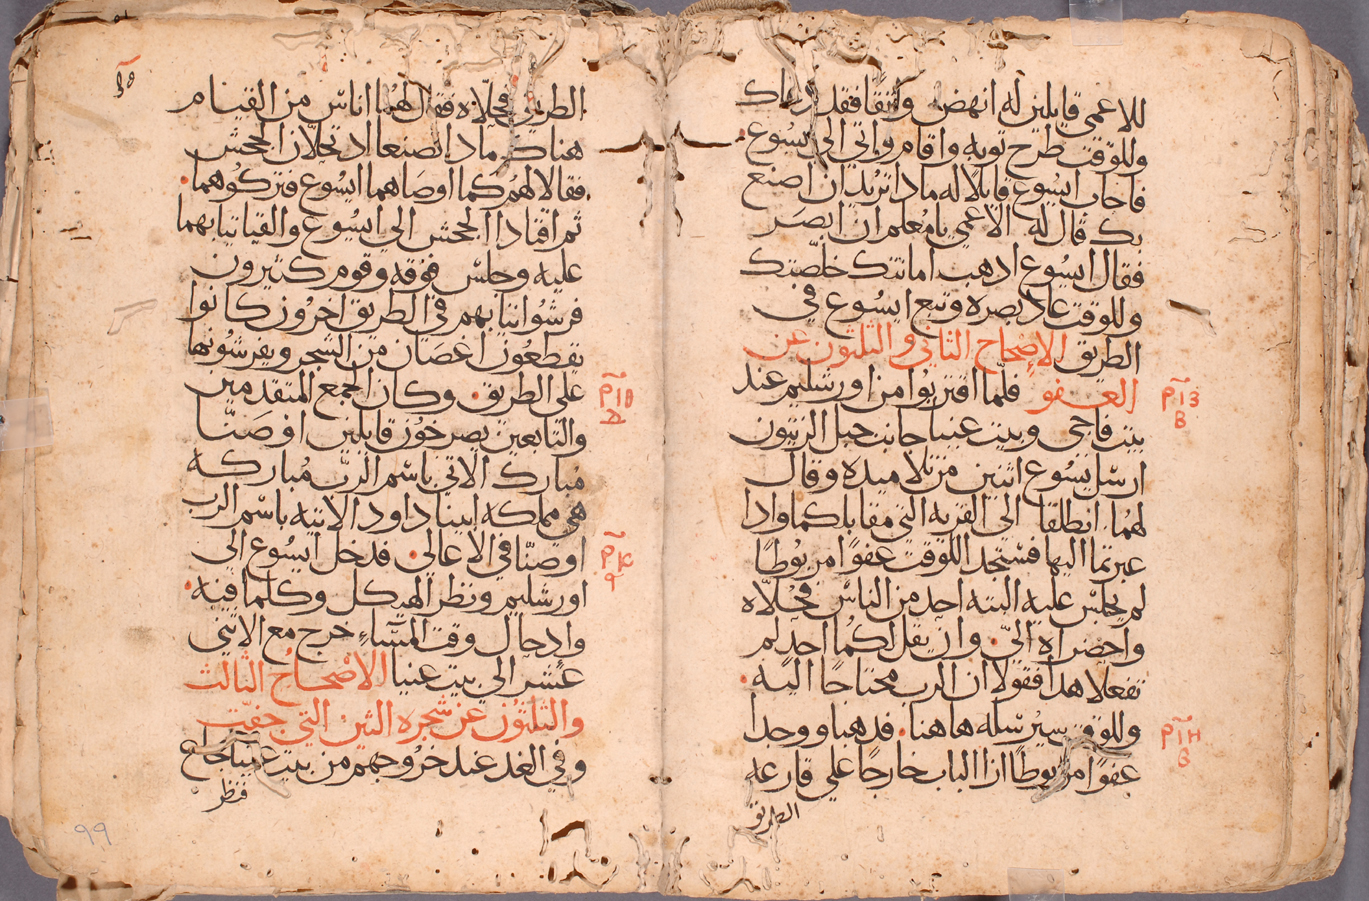 للاعمي قايلين له انهض واثقًا فقد دعاك
وللوقت طرح ثوبه واقام واتي الي يسوع
فاجاب ايسوع قايلًا له ماذا تريد ان اصنع
بك قال له الاعمي يا معلم ان ابصر
فقال ايسوع اذهب امانتك خلصتك
وللوقت عاد بصره وتبع ايسوع في
الطريق الاصحاح الثاني والثلثون عن
العفو فلما اقتربوا من اورشليم عند
بيت فاجي وبيت عنيا جانب جبل الزيتون
ارسل يسوع اثنين من تلاميذه وقال
لهما انطلقا الي القرية التي مقابلكما واذا
عبرتما اليها فستجد اللوقت عفوًا مربوطًا
لم يجلس عليه البته احد من الناس فحلاه
واحضراه اليّ وان يقل لكما احد لم
تفعلا هذا فقولا ان الرب محتاجًا اليه
وللوقت سيرسله ها هنا فذهبا ووجدا
عفوًا مربوطًا ازا الباب خارجًا علي قارعه
الطريق
الطريق فحلاه فقال لهما اناس من القيام
هناك ماذا تصنعا اذ تحلان الجحش
فقالا لهم كما اوصاهما ايسوع فتركوهما
ثم اقتادا الجحش الي ايسوع والقيا ثيابهما
عليه وجلس فوقه وقوم كثيرون
فرشوا ثيابهم في الطريق اخرون كانوا
يقطعون اغصان من الشجر ويفرشونها
علي الطريق وكان الجمع المتقدمين
والتابعين يصرخون قايلين اوصنّا
مبارك الاتي باسم الرب مباركه
هي مملكه ابينا داود الاتيه باسم الرب
اوصنّا في الاعالي فدخل ايسوع الي
اورشليم ونظر الهيكل وكلما فيه
واذ حال وقت المساء خرج مع الاثني
عشر الي بيت عنيا الاصحاح الثالث
والثلثون عن شجره التين التي جفت
وفي الغد عند خروجهم من بيت عنيا جاع
فنظر
99